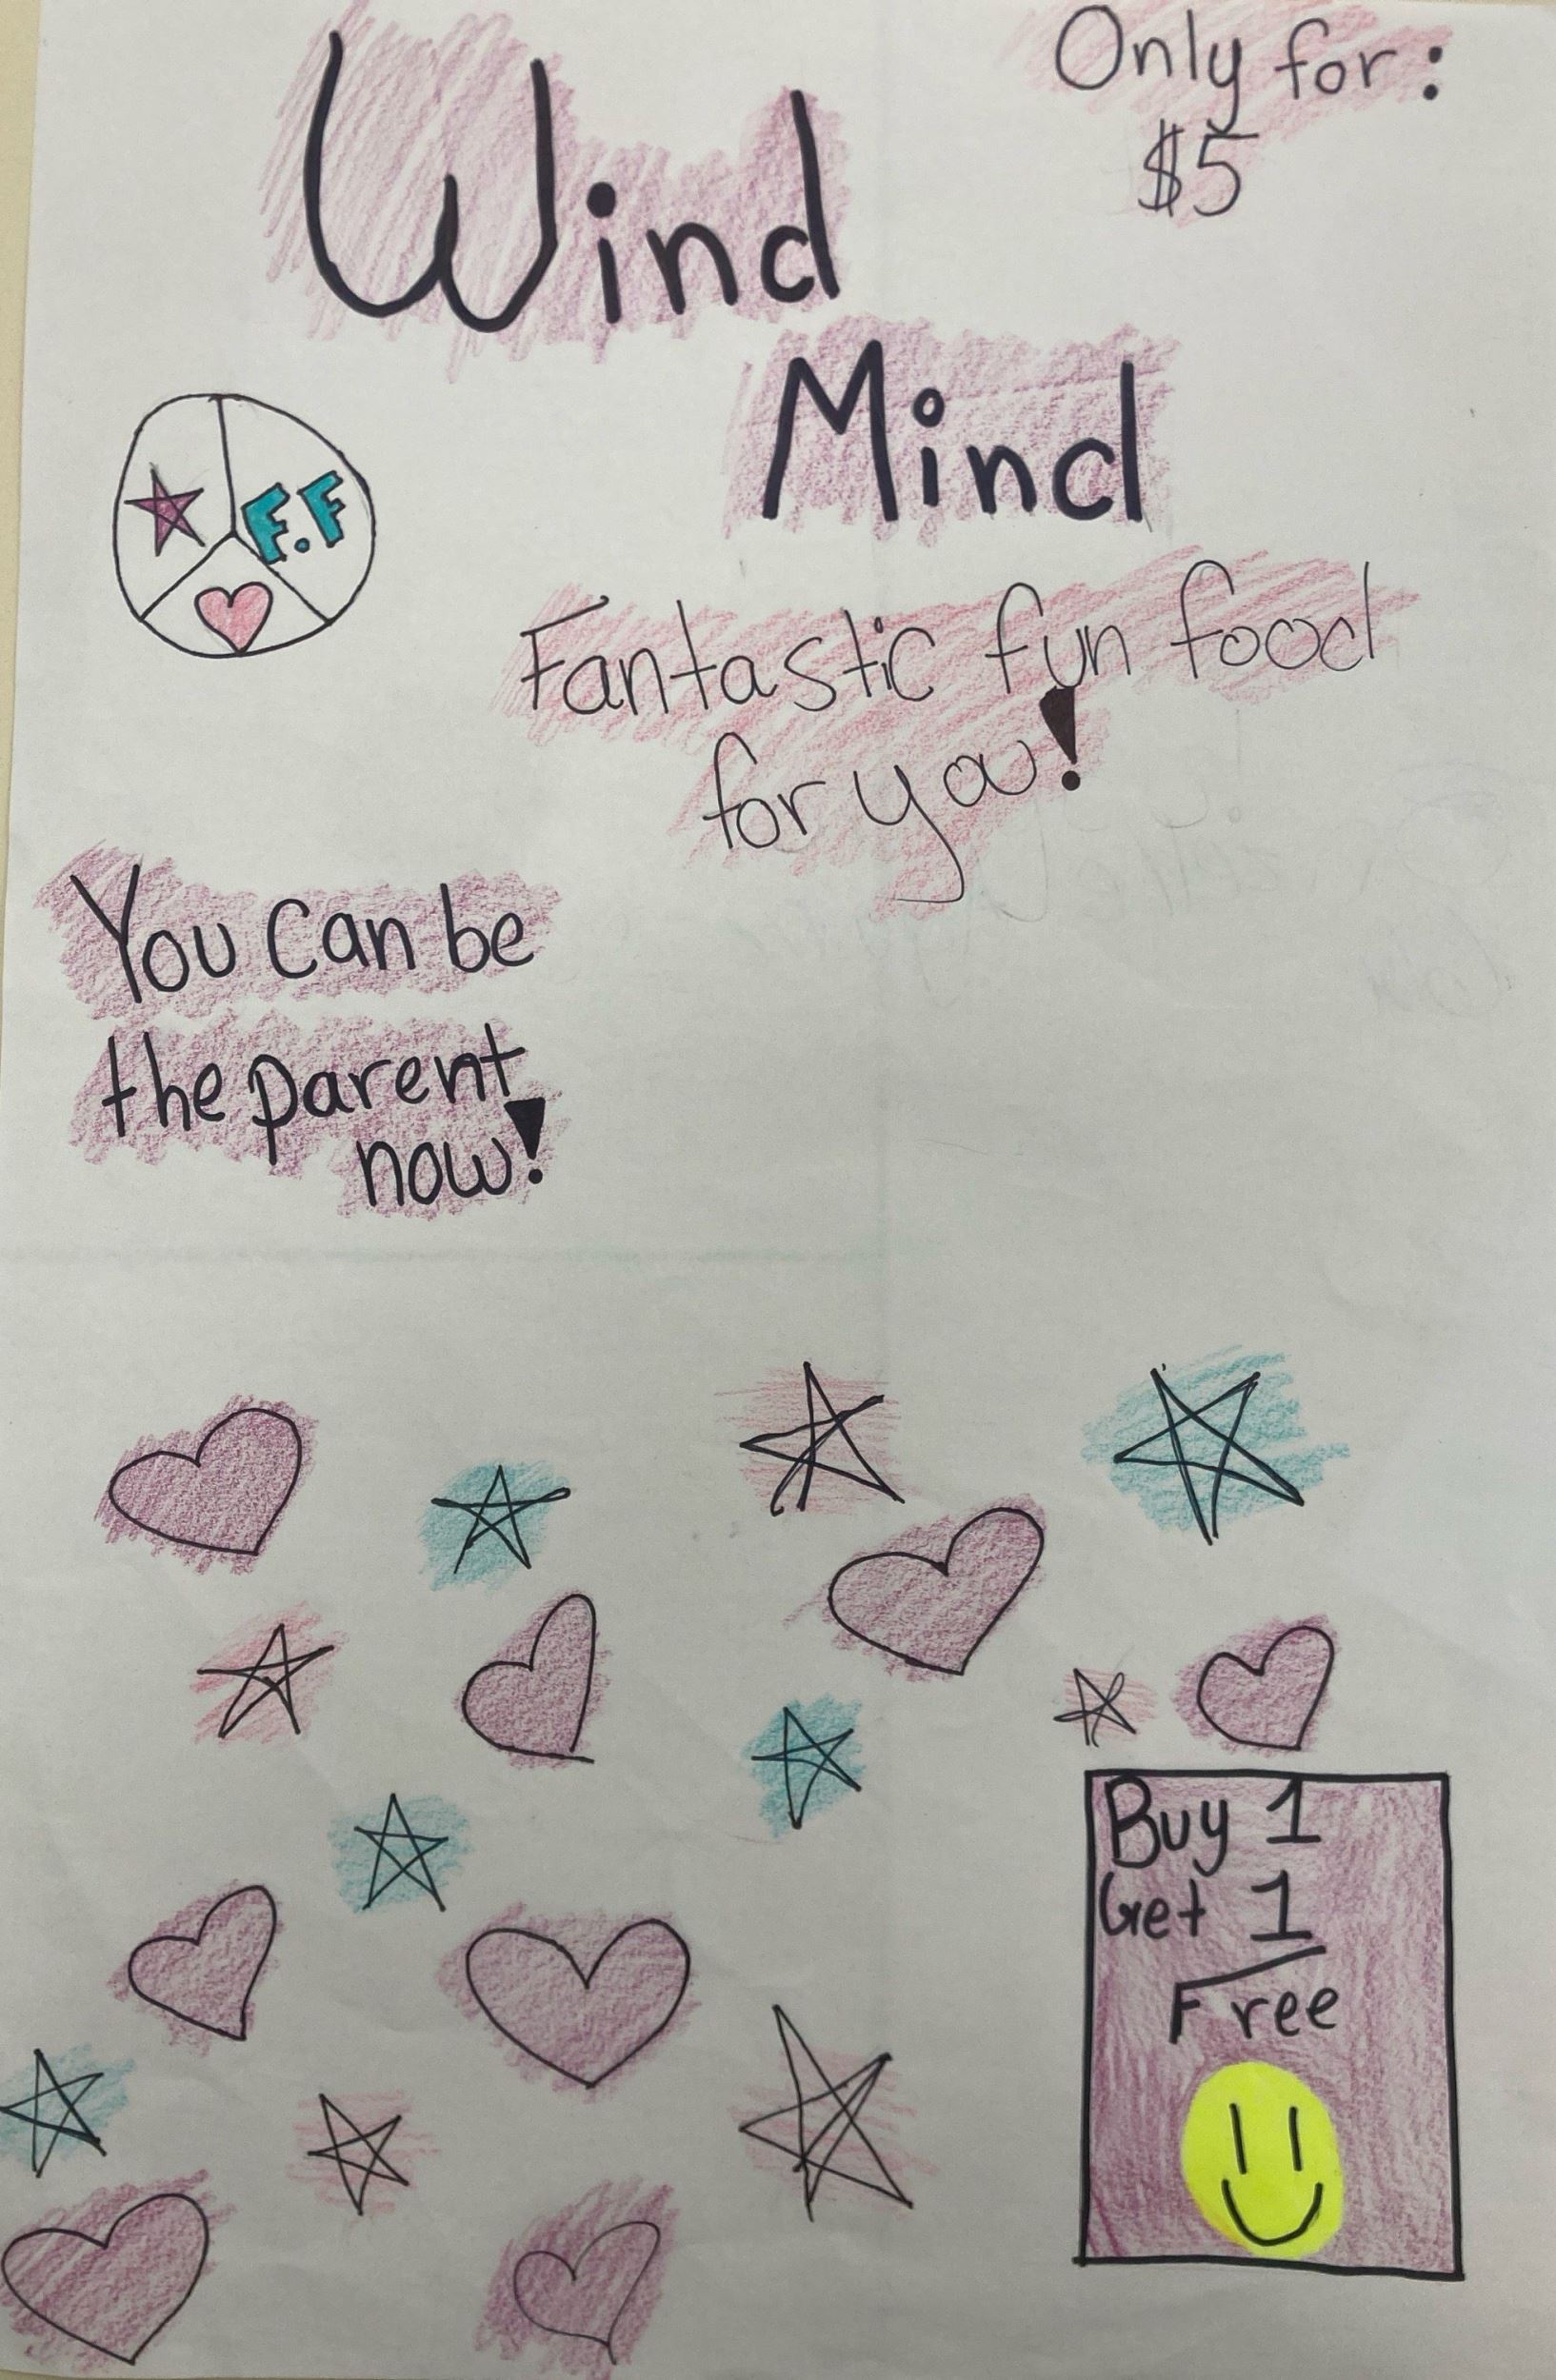 Only for:
$5
Wind
Mind
F.F
Fantastic fun food
for you!
You can be
the parent
now!
Buy 1
Get 1
Free